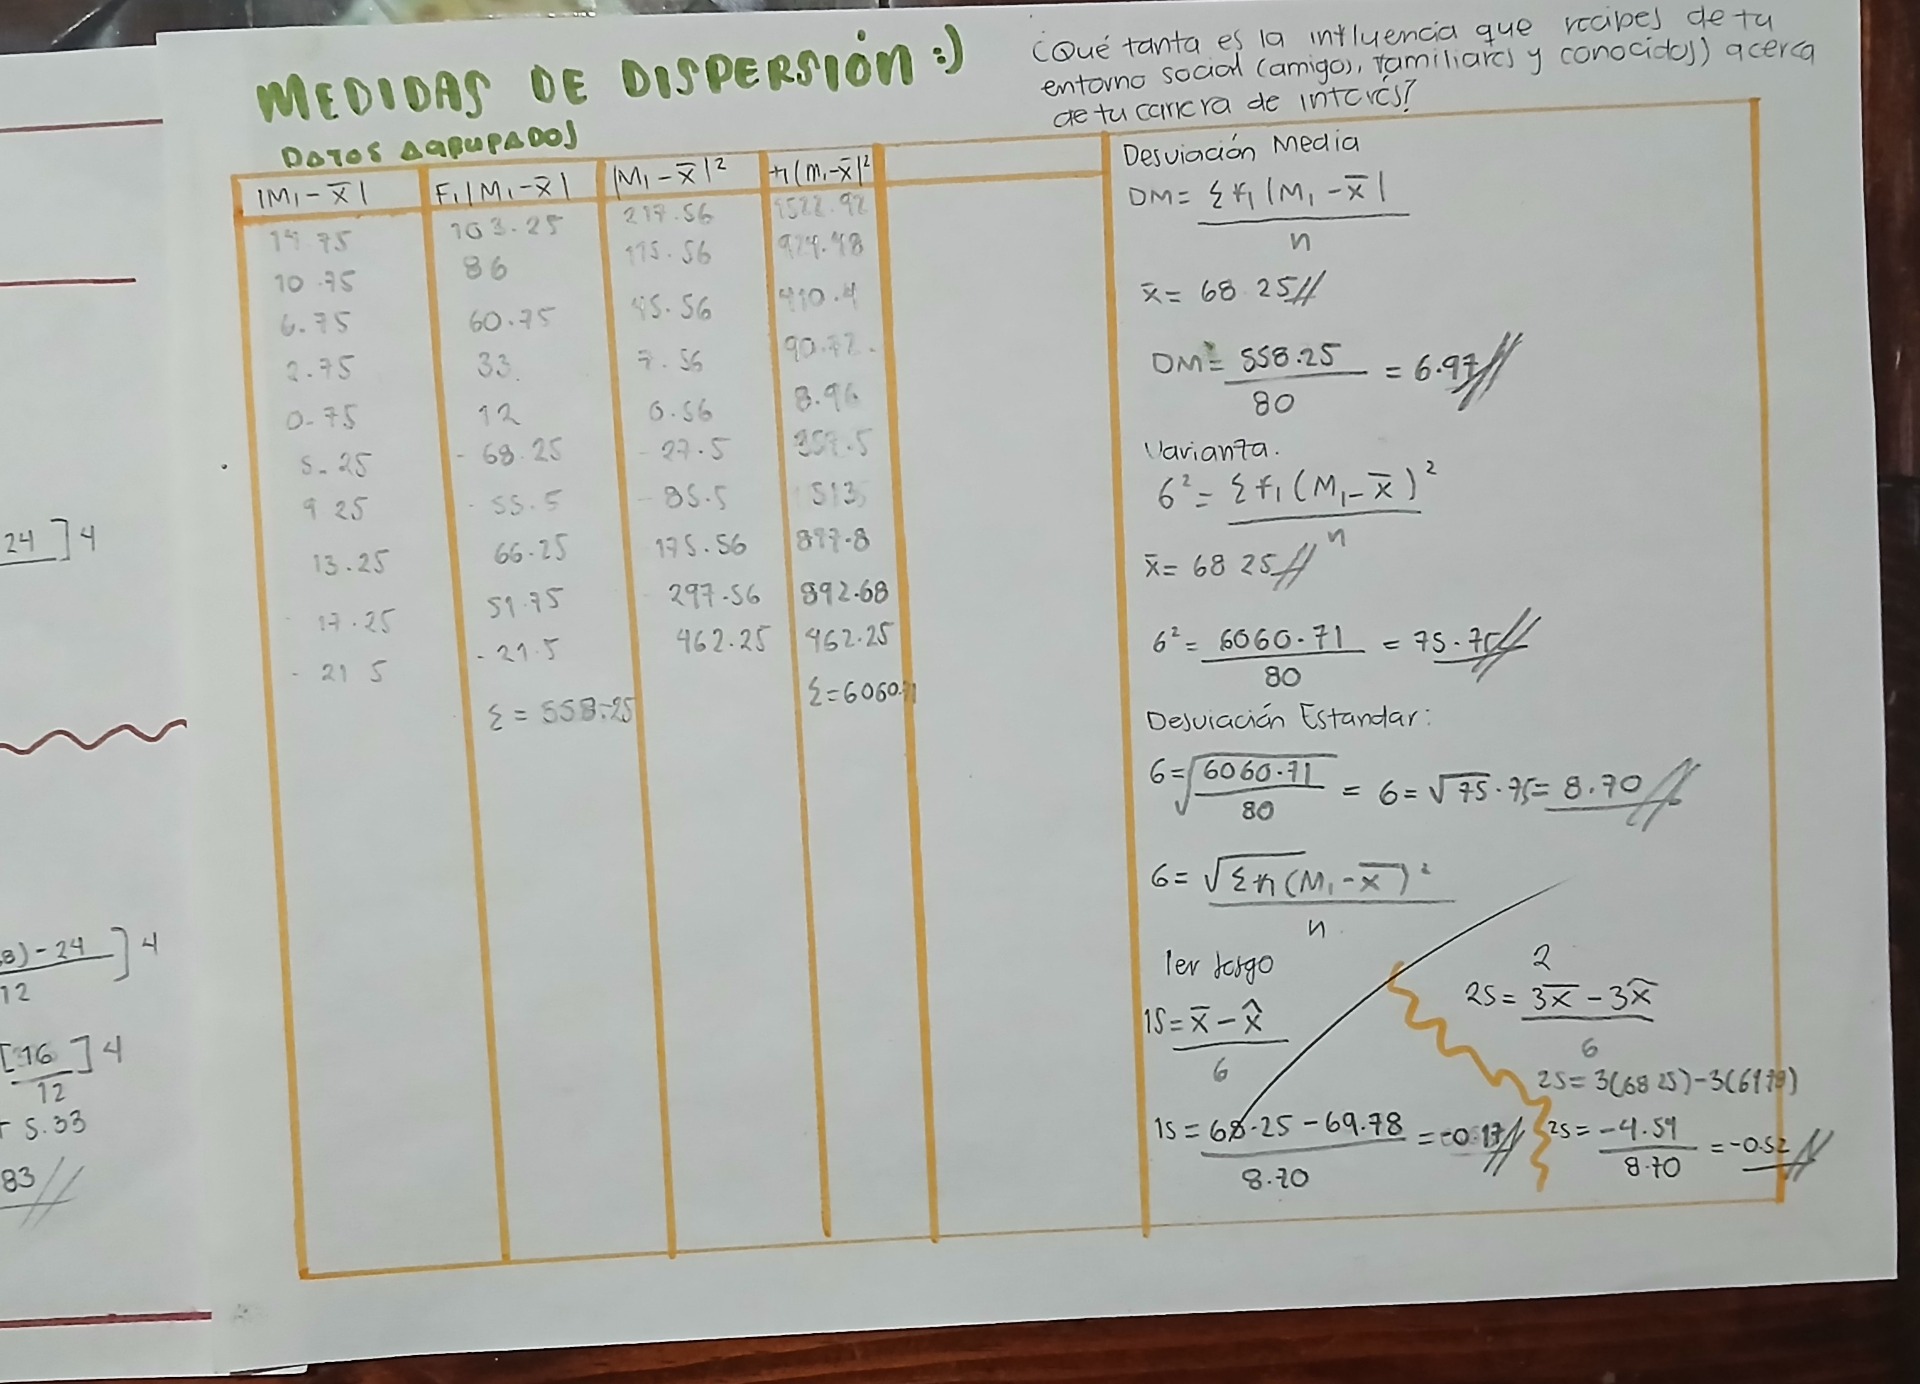 MEDIDAS DE DISPERSIÓN :)
DATOS AGRUPADOS
¿Qué tanta es la influencia que recibes de tu
entorno social (amigos, familiares y conocidos) acerca
de tu carrera de interés?
|M₁ - x̄| F₁|M₁ - x̄| |M₁ - x̄|² f₁(M₁-x̄)²
14.75 103.25 217.56 1522.92
10.75 86 115.56 924.48
6.75 60.75 45.56 410.4
2.75 33. 7.56 90.72.
0.75 12 0.56 8.96
5.25 - 68.25 - 27.5 357.5
9 25 - 55.5 - 85.5 513
13.25 66.25 175.56 877.8
- 17.25 51.75 297.56 892.68
- 21 5 - 21.5 462.25 462.25
Σ = 558.25 Σ=6060.71
Desviación Media
DM= Σf₁|M₁ - x̄|
n
x̄= 68 25//
DM= 558.25 = 6.97//
80
Varianza.
6²= Σf₁(M₁-x̄)²
n
x̄= 68 25//
6²= 6060.71 = 75.75//
80
Desviación Estandar:
6=√6060.71 = 6=√75.75= 8.70//
80
6= √Σf₁(M₁-x̄)²
n
1er sesgo
1S= x̄ - x̂
6
1S= 68.25 - 69.78 = -0.17//
8.70
2
2S= 3x̄ - 3x̃
6
2S= 3(68 25)-3(69 78)
2S= -4.59 = -0.52//
8.70
24 ] 4
8) - 24 ] 4
12
[16 ] 4
12
+ 5.33
83//